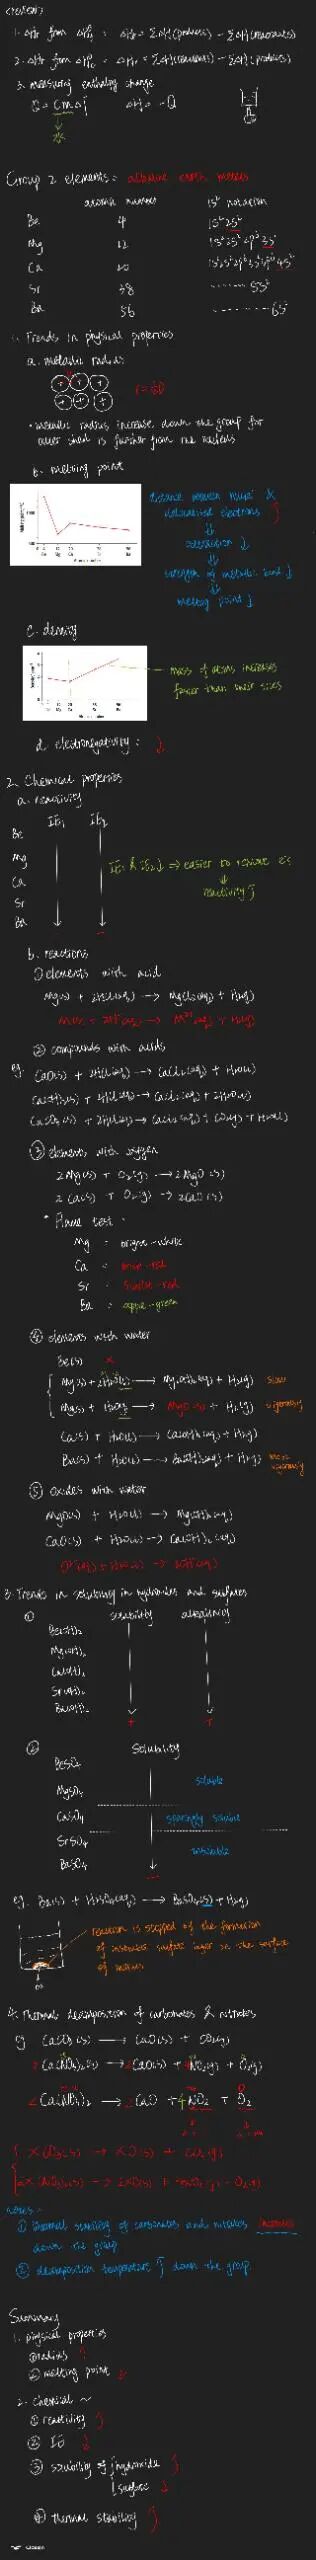 1. ΔHr from ΔHf = ΔHr = ΣΔH(products) - ΣΔH(reactants)
2. ΔHr from ΔHc = ΔHr = ΣΔH(reactants) - ΣΔH(products)
3. measuring enthalpy change
Q = CmΔT ΔH = -Q
Group 2 elements: alkaline earth metals
atomic number 1s² notation
Be 4 1s²2s²
Mg 12 1s²2s²2p⁶3s²
Ca 20 1s²2s²2p⁶3s²3p⁶4s²
Sr 38 ········ 5s²
Ba 56 ········ 6s²
1. Trends in physical properties
a. metallic radius
• metallic radius increase down the group for
outer shell is further from the nucleus
b. melting point
distance between nuclei &
delocalised electrons
attraction ↓
strength of metallic bond ↓
melting point ↓
c. density
mass of atoms increases
faster than their sizes
d. electronegativity: ↓
2. Chemical properties
a. reactivity
IE1 IE2
Be
Mg
Ca
Sr
Ba
IE1 & IE2 ↓ ⇒ easier to remove e's
reactivity ↑
b. reactions
① elements with acid
Mg(s) + 2HCl(aq) → MgCl2(aq) + H2(g)
M(s) + 2H⁺(aq) → M²⁺(aq) + H2(g)
② compounds with acids
eg. CaO(s) + 2HCl(aq) → CaCl2(aq) + H2O(l)
CaCO3(s) + 2HCl(aq) → CaCl2(aq) + CO2(g) + H2O(l)
③ elements with oxygen
2Mg(s) + O2(g) → 2MgO(s)
2Ca(s) + O2(g) → 2CaO(s)
* Flame test:
Mg = bright-white
Ca = -red
Sr = -red
Ba = apple-green
④ elements with water
Be(s) ×
Mg(s) + 2H2O(l) → Mg(OH)2(aq) + H2(g) slow
Mg(s) + H2O(g) → MgO(s) + H2(g) vigorously
Ca(s) + H2O(l) → Ca(OH)2(aq) + H2(g)
Ba(s) + H2O(l) → Ba(OH)2(aq) + H2(g) more vigorously
⑤ oxides with water
MgO(s) + H2O(l) → Mg(OH)2(aq)
CaO(s) + H2O(l) → Ca(OH)2(aq)
3. Trends in solubility in hydroxides and sulfates
① solubility alkalinity
Be(OH)2
Mg(OH)2
Ca(OH)2
Sr(OH)2
Ba(OH)2
+ +
② Solubility
BeSO4
MgSO4 soluble
CaSO4 sparingly soluble
SrSO4 insoluble
BaSO4
eg. Ba(s) + H2SO4(aq) → BaSO4(s) + H2(g)
reaction is stopped of the formation
of insoluble sulfate layer on the surface
of
4. Thermal decomposition of carbonates & nitrates
eg CaCO3(s) → CaO(s) + CO2(g)
2Ca(NO3)2(s) → 2CaO(s) + 4NO2(g) + O2(g)
2Ca(NO3)2 → 2CaO + 4NO2 + O2
XCO3(s) → XO(s) + CO2(g)
2X(NO3)2(s) → 2XO(s) + 4NO2(g) + O2(g)
notes:
① thermal stability of carbonates and nitrates increases
down the group
② decomposition temperature ↑ down the group
Summary
1. physical properties
① radius ↑
② melting point ↓
2. Chemical ~
① reactivity ↑
② IE ↓
③ solubility of hydroxide ↑
sulfate ↓
④ thermal stability ↑